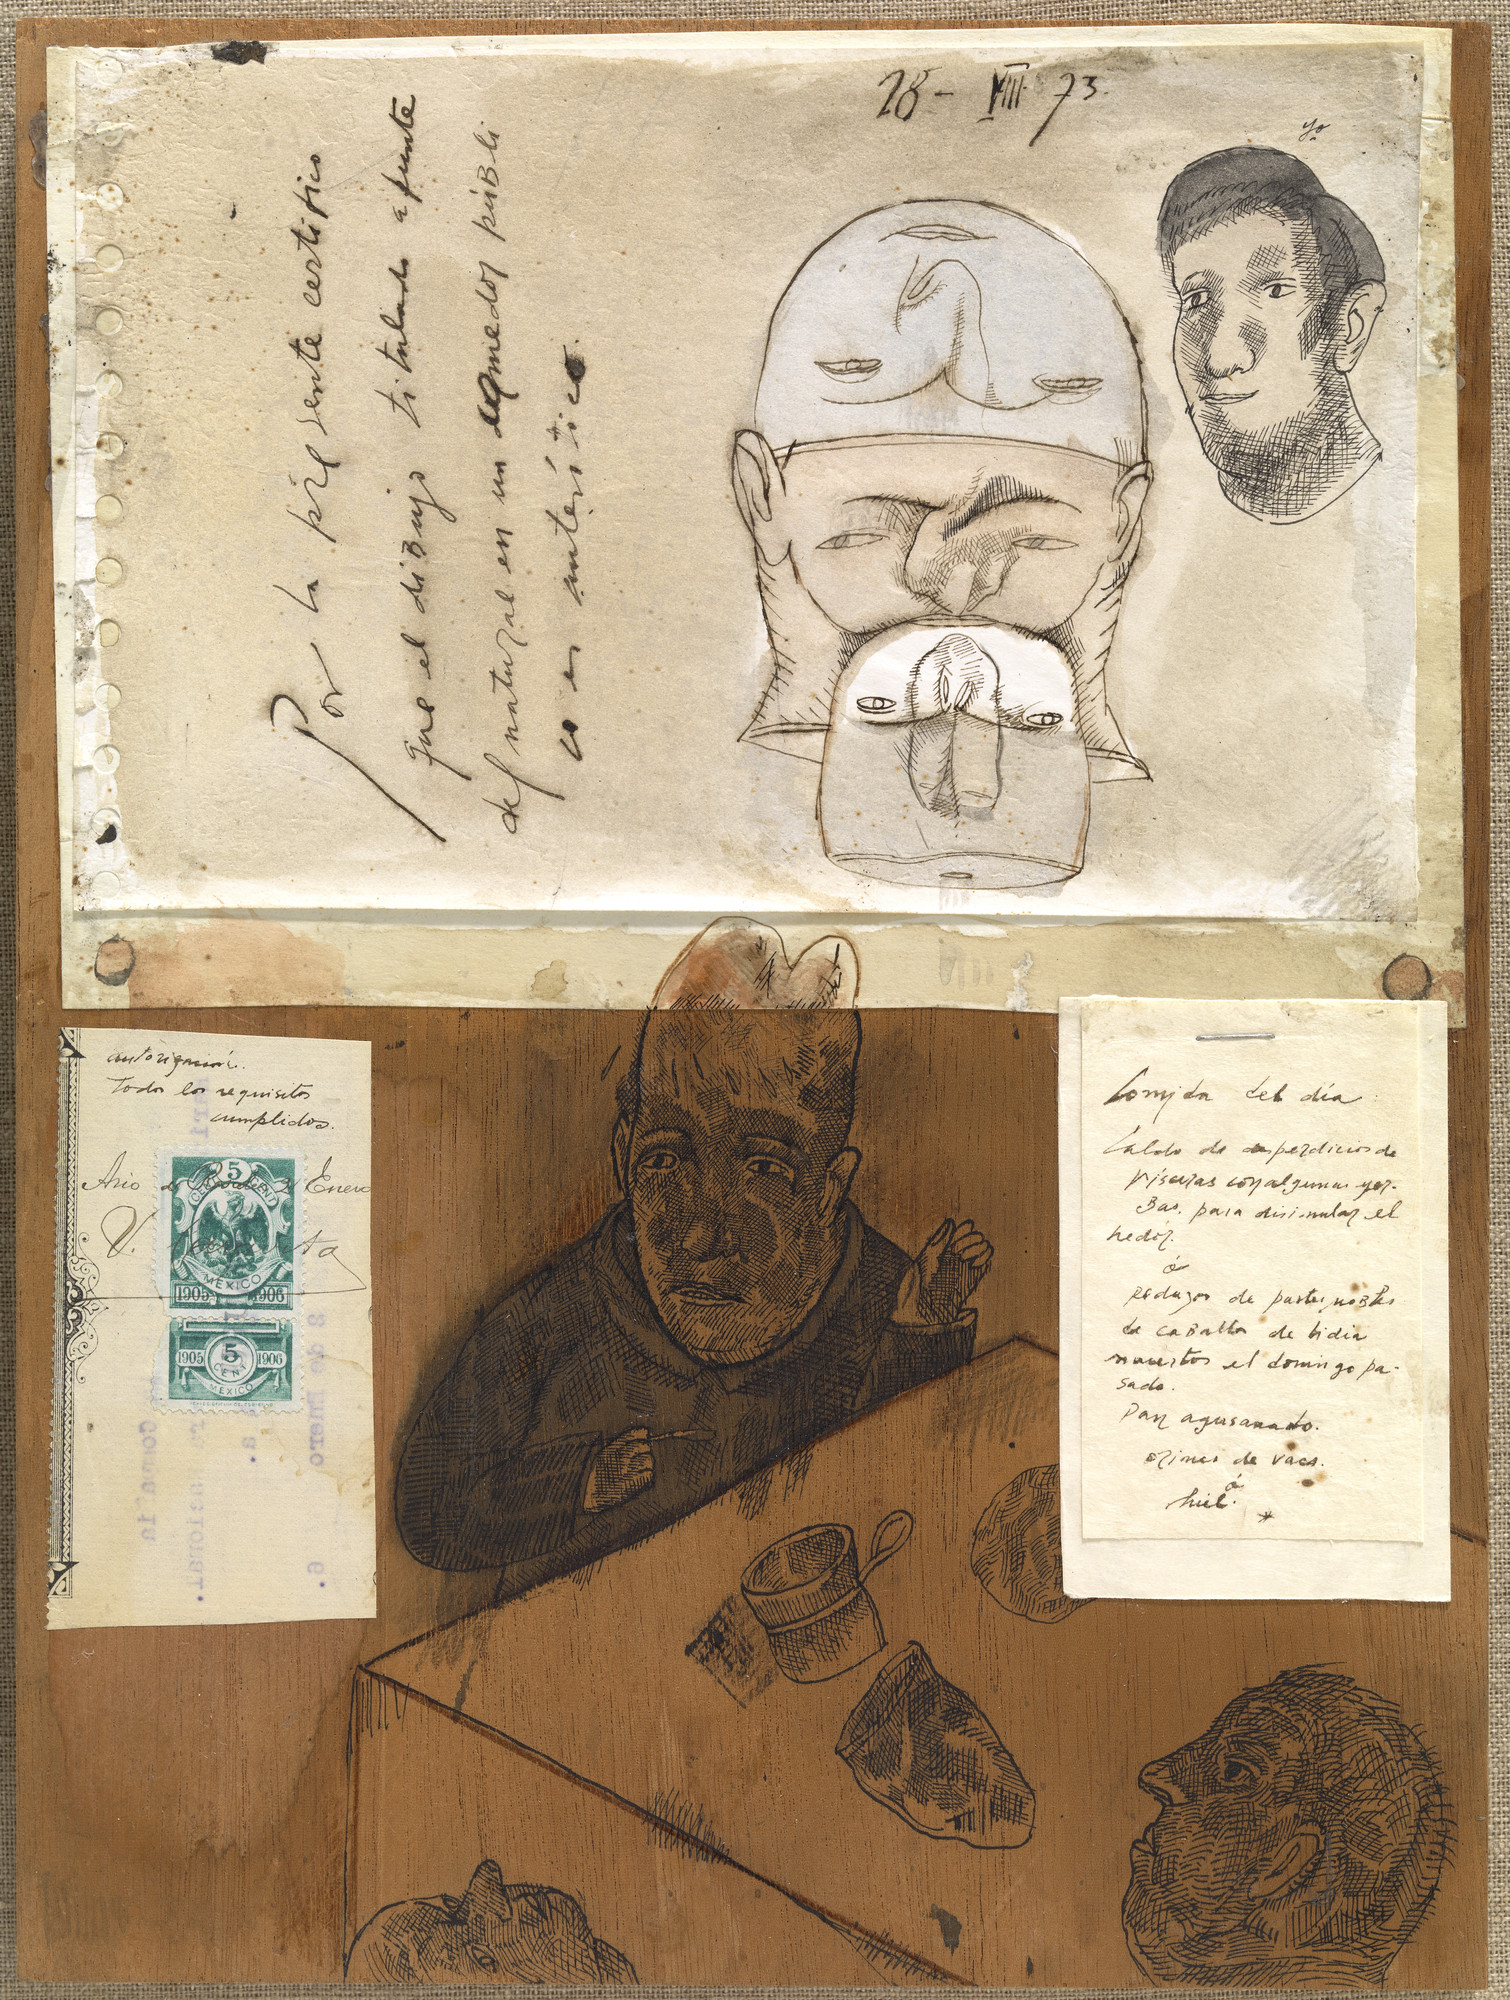 28 - VIII 73.
yo
Por la presente certifico
que el dibujo titulado apunte
del natural en un comedor públi
co es auténtico.
autorización.
Todos los requisitos
cumplidos.
Año de Enero
V.
5
CENT
MEXICO
1905 1906
1905 5 1906
CENT
MEXICO
Comida del día
Caldo de desperdicios de
vísceras con algunas yer-
bas. para disimular el
hedor.
ó
pedazos de partes nobles
de caballo de lidia
muertos el domingo pa-
sado.
Pan agusanado.
orines de vaca.
ó
hiel.